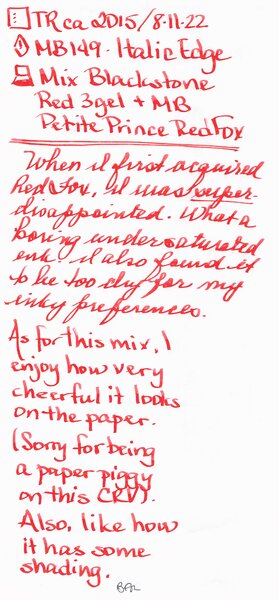 TR ca 2015/8·11·22
MB149 - Italic Edge
Mix Blackstone
Red 3gel + MB
Petite Prince Red Fox
When I first acquired
Red Fox, I was super-
disappointed. What a
boring undersaturated
ink. I also found it
to be too dry for my
inky preferences.
As for this mix, I
enjoy how very
cheerful it looks
on the paper.
(Sorry for being
a paper piggy
on this CRV).
Also, like how
it has some
shading.